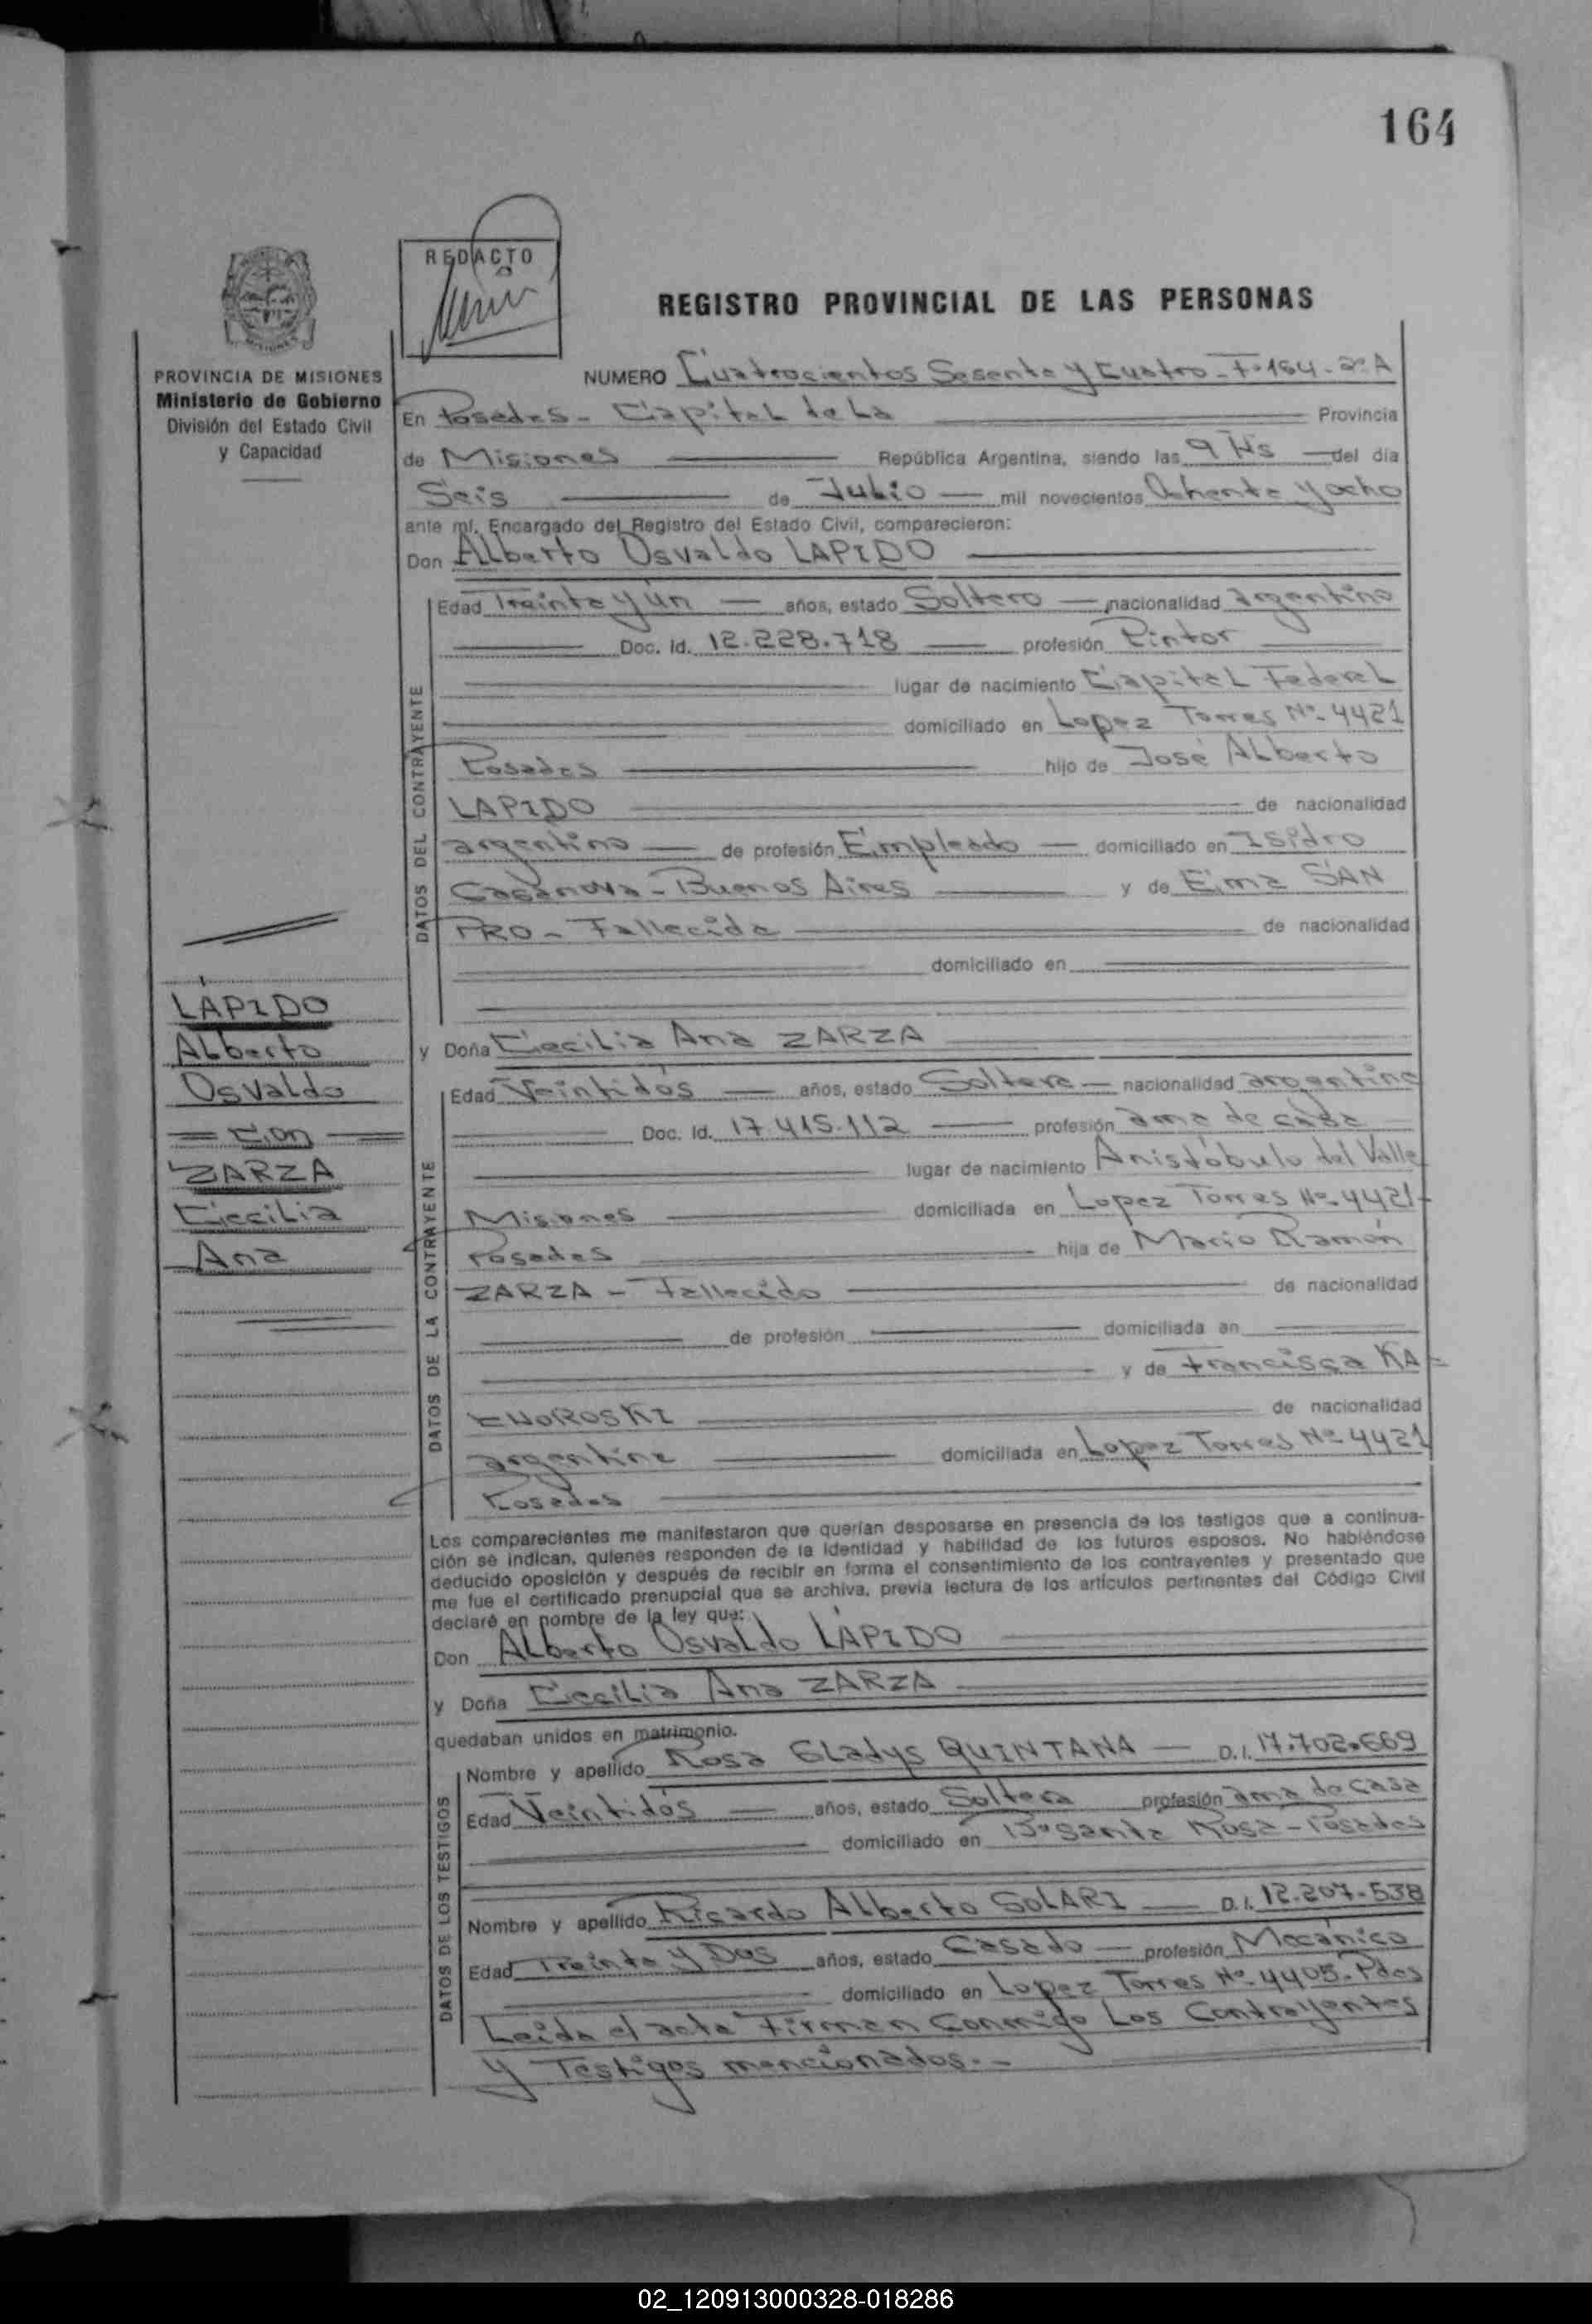 164
REDACTO
REGISTRO PROVINCIAL DE LAS PERSONAS
PROVINCIA DE MISIONES
Ministerio de Gobierno
División del Estado Civil
y Capacidad
NUMERO Cuatrocientos Sesenta y Cuatro - Fº 164 - 2º A
En Posadas - Capital de La Provincia
de Misiones República Argentina, siendo las 9 Hs del día
Seis de Julio mil novecientos Ochenta y ocho
ante mí, Encargado del Registro del Estado Civil, comparecieron:
Don Alberto Osvaldo LAPIDO
DATOS DEL CONTRAYENTE
Edad Treinta y un años, estado Soltero nacionalidad argentino
Doc. Id. 12.228.718 profesión Pintor
lugar de nacimiento Capital Federal
domiciliado en Lopez Torres Nº 4421
Posadas hijo de José Alberto
LAPIDO de nacionalidad
argentino de profesión Empleado domiciliado en Isidro
Casanova - Buenos Aires y de Ema SAN
PRO - Fallecida de nacionalidad
domiciliado en
LAPIDO
Alberto
Osvaldo
con
ZARZA
Cecilia
Ana
y Doña Cecilia Ana ZARZA
DATOS DE LA CONTRAYENTE
Edad Veintidós años, estado Soltera nacionalidad argentina
Doc. Id. 17.415.112 profesión ama de casa
lugar de nacimiento Aristóbulo del Valle
Misiones domiciliada en Lopez Torres Nº 4421-
Posadas hija de Mario Ramón
ZARZA - Fallecido de nacionalidad
de profesión domiciliada en
y de Francisca KA=
CHOROSKI de nacionalidad
argentina domiciliada en Lopez Torres Nº 4421
Posadas
Los comparecientes me manifestaron que querían desposarse en presencia de los testigos que a continua-
ción se indican, quienes responden de la identidad y habilidad de los futuros esposos. No habiéndose
deducido oposición y después de recibir en forma el consentimiento de los contrayentes y presentado que
me fue el certificado prenupcial que se archiva, previa lectura de los artículos pertinentes del Código Civil
declaré en nombre de la ley que:
Don Alberto Osvaldo LAPIDO
y Doña Cecilia Ana ZARZA
quedaban unidos en matrimonio.
DATOS DE LOS TESTIGOS
Nombre y apellido Rosa Gladys QUINTANA D.I. 17.702.669
Edad Veintidós años, estado Soltera profesión ama de casa
domiciliado en Bº Santa Rosa - Posadas
Nombre y apellido Ricardo Alberto SOLARI D.I. 12.207.538
Edad Treinta y Dos años, estado Casado profesión Mecánico
domiciliado en Lopez Torres Nº 4405 - Pdas
Leida el acta Firman Conmigo Los Contrayentes
y Testigos mencionados.-
02_120913000328-018286